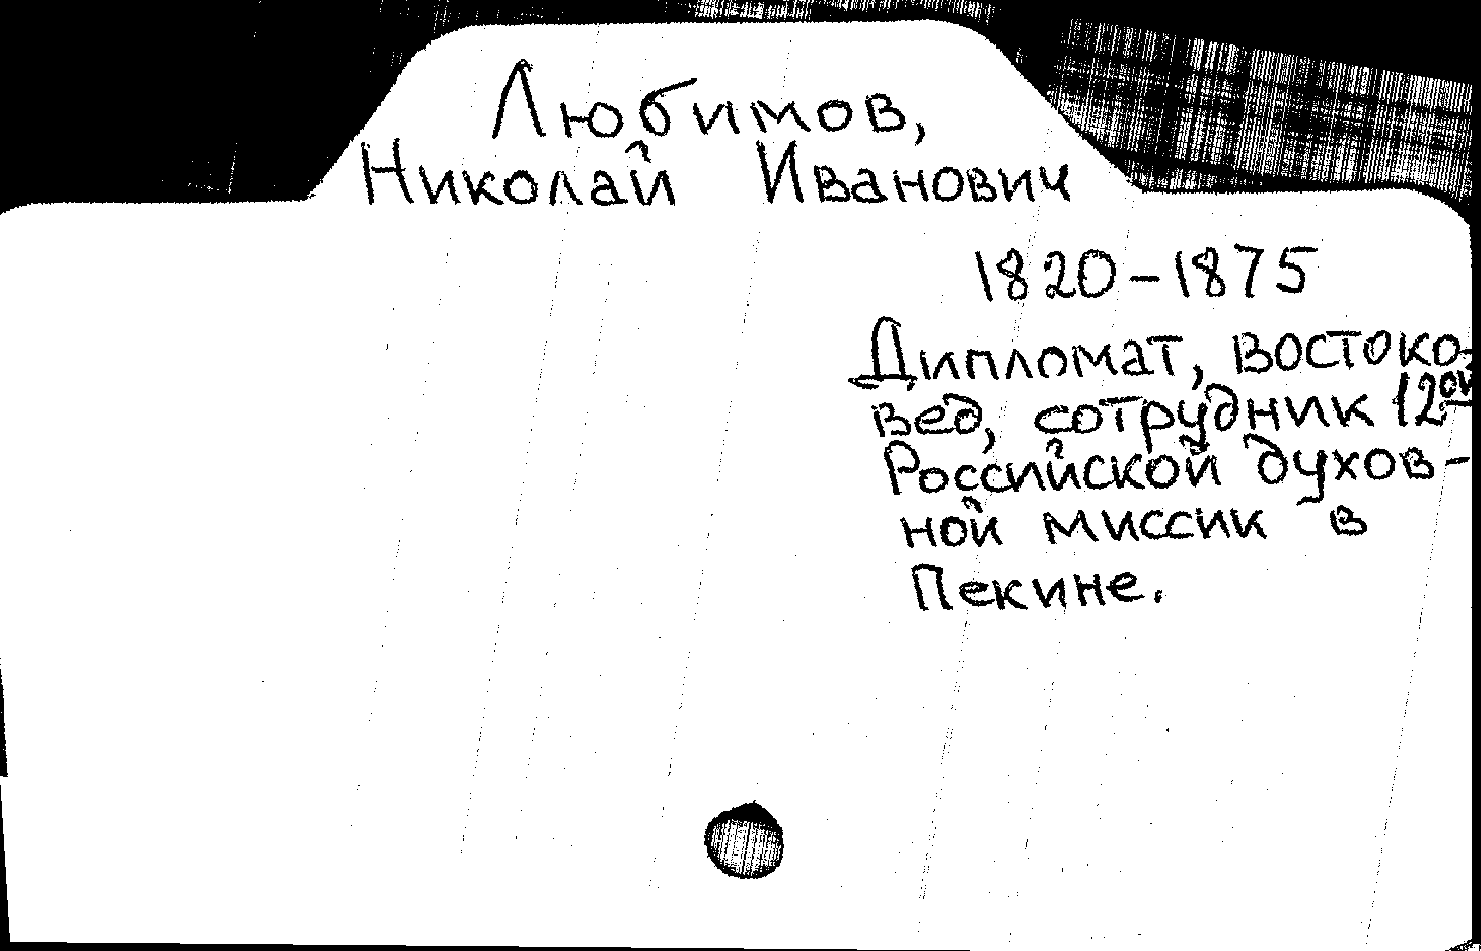 Любимов,
Николай Иванович
1820-1875
Дипломат, востоко-
вед, сотрудник 12ой
Российской духов-
ной миссии в
Пекине.